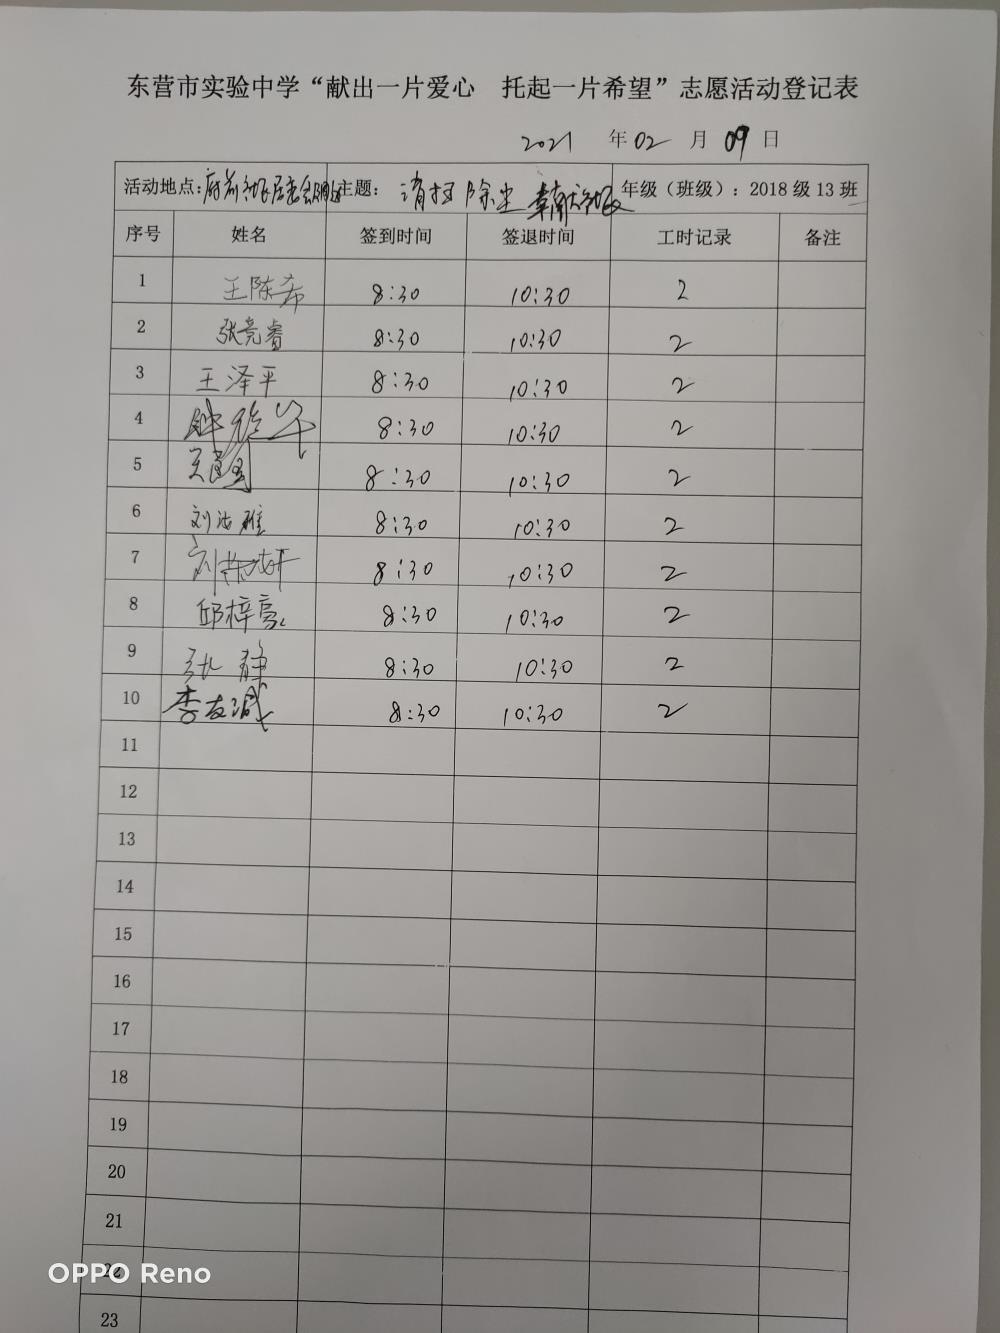 东营市实验中学“献出一片爱心 托起一片希望”志愿活动登记表
2021 年 02 月 09 日
活动地点: 主题: 清扫除尘 年级（班级）: 2018 级 13 班
序号 姓名 签到时间 签退时间 工时记录 备注
1 王陈希 8:30 10:30 2
2 张竞睿 8:30 10:30 2
3 王泽平 8:30 10:30 2
4 8:30 10:30 2
5 8:30 10:30 2
6 8:30 10:30 2
7 8:30 10:30 2
8 邱梓豪 8:30 10:30 2
9 张静 8:30 10:30 2
10 李友诚 8:30 10:30 2
11
12
13
14
15
16
17
18
19
20
21
22
23
OPPO Reno